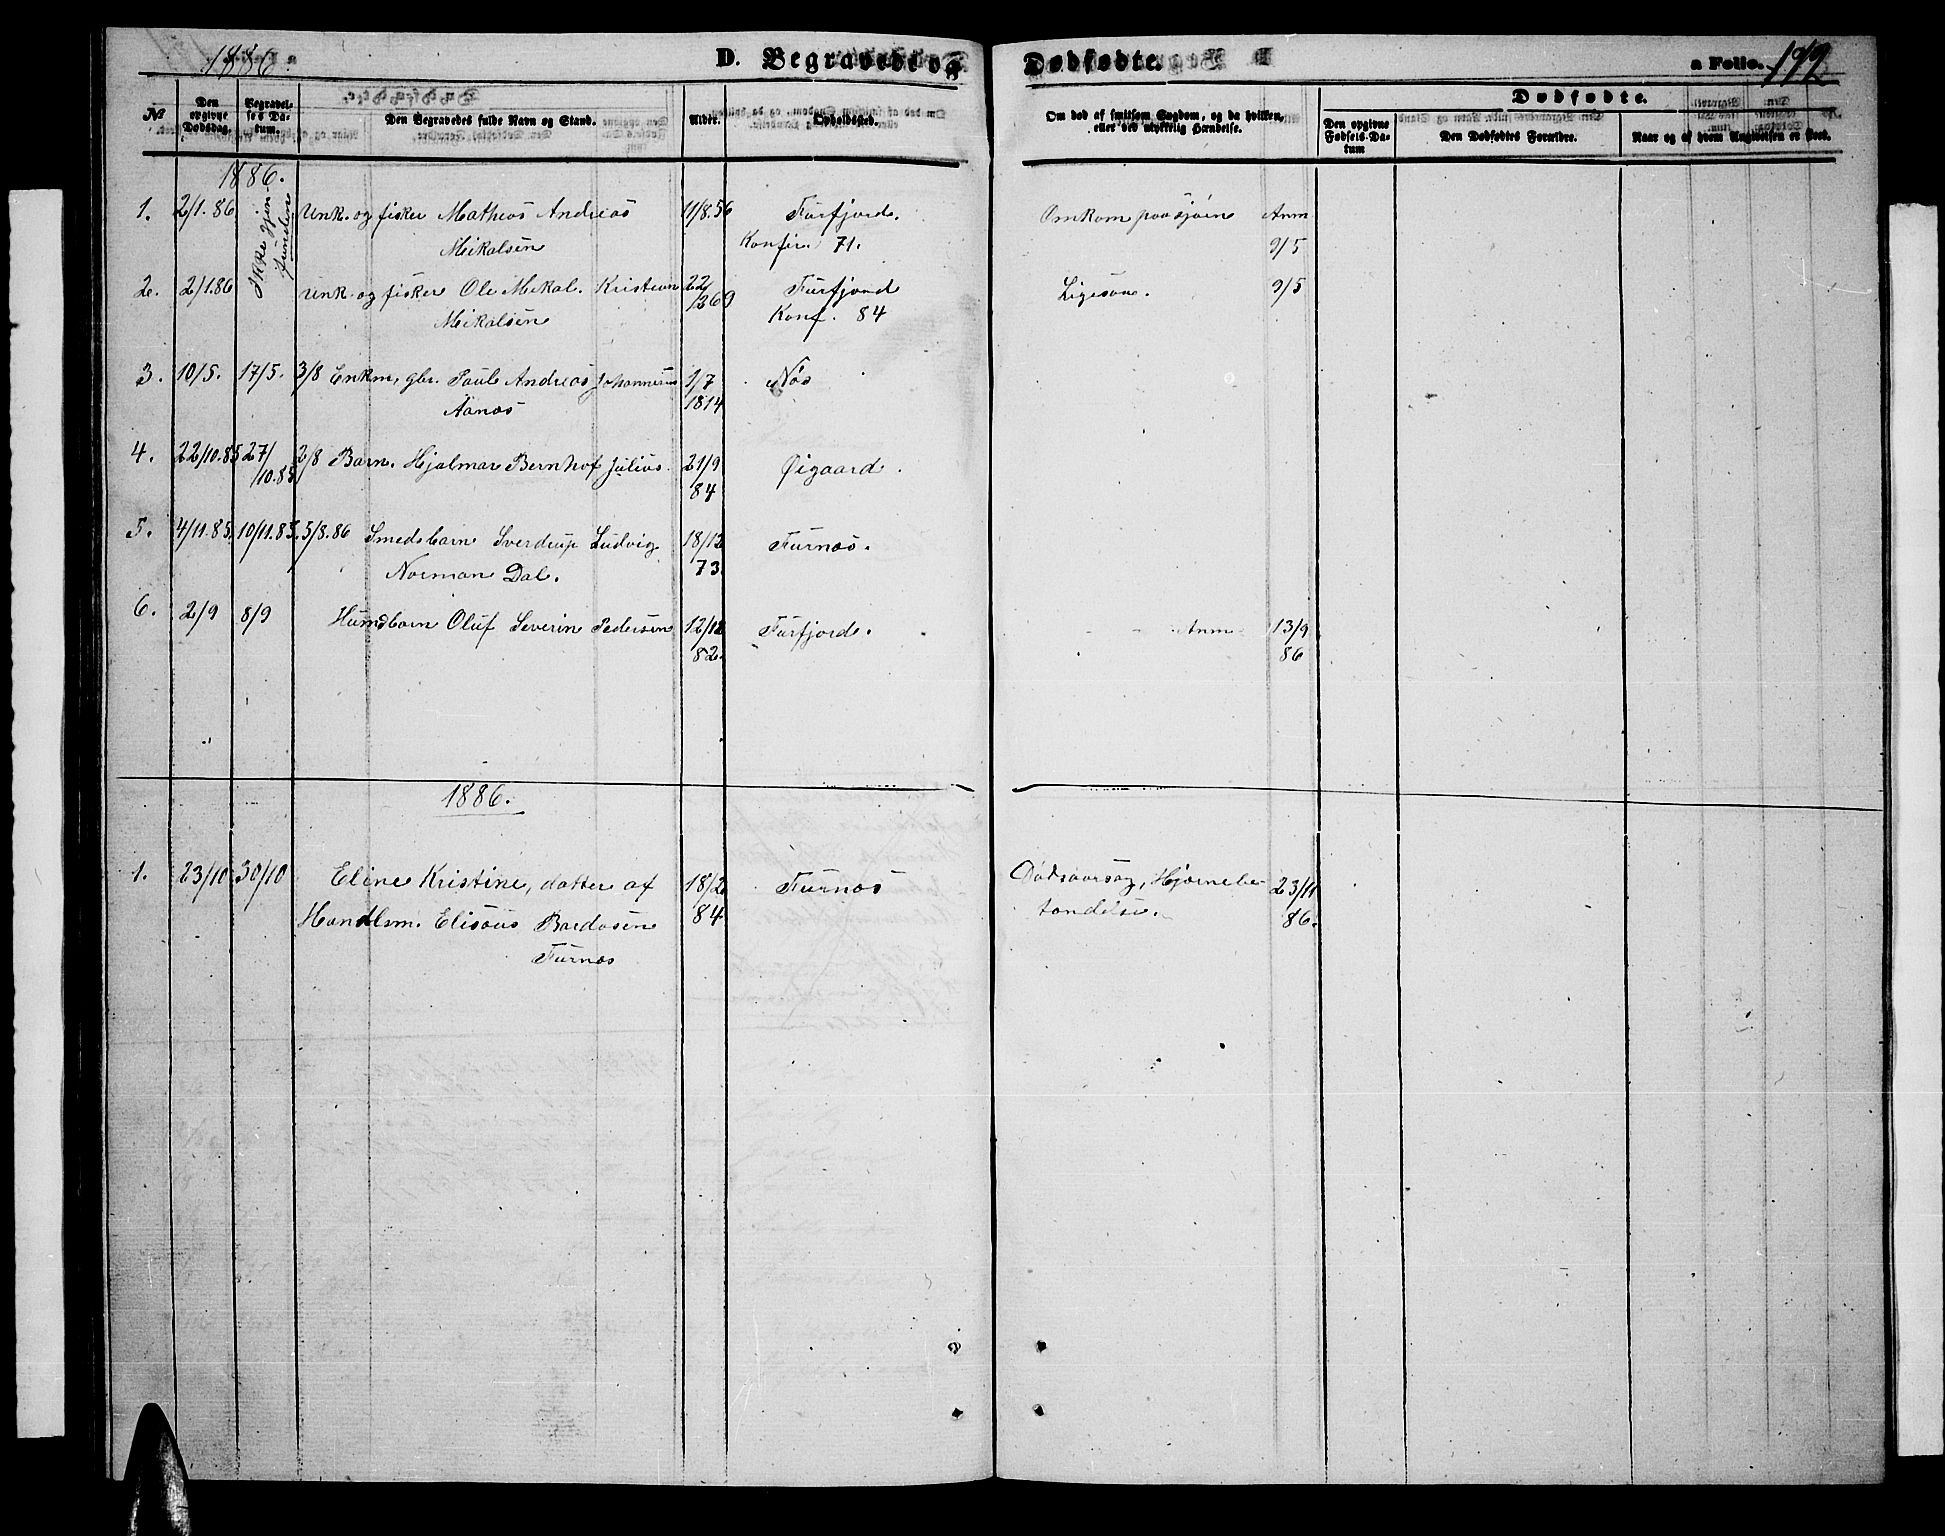 1886.
D. Begravede og Dødfødte.
a Folio. 199
№
Den opgivne Dødsdag.
Begravelses Datum.
Den Begravedes fulde Navn og Stand.
Alder.
Opholdssted.
Om død af smitsom Sygdom, og da hvilken, eller ved ulykkelig Hændelse.
Dødfødte.
Den opgivne Fødsels-Datum
Den Dødfødtes Forældre.
Naar og af hvem Angivelsen er skeet.
1886.
1. 2/1.86 Ikke gjen- Unk. og fisker Mathias Andreas 11/8.56 Furfjord. Omkom paa sjøen Anm
funden Mikalsen Konfir. 71. 9/5
2. 2/1.86 Unk. og fisker Ole Mikal Kristian 22/ Furfjord Ligesaa. 9/5
Mikalsen Konf. 84
3. 10/5. 17/5. 3/8 Enkm, gbr. Paul Andreas Johannesen 1/7 Næs
Aanæs 1814
4. 22/10.85 27/ 2/8 Barn. Hjalmar Bernhof Julius. 21/9 Øigaard.
10.85 84
5. 4/11.85. 10/11.85. 5/8.86 Smedsbarn Sverdrup Ludvig 18/12 Furnæs.
Norman Dal. 73.
6. 2/9 8/9 Husmdbarn Oluf Severin Pedersen 12/12 Furfjord. Anm 13/9
82. 86
1886.
1. 23/10 30/10 Eline Kristine, datter af 18/2 Furnæs Dødsaarsag, Hjernebe- 23/11
Handlsm. Elisæus Bardosen 84 tændelse. 86.
Furnæs